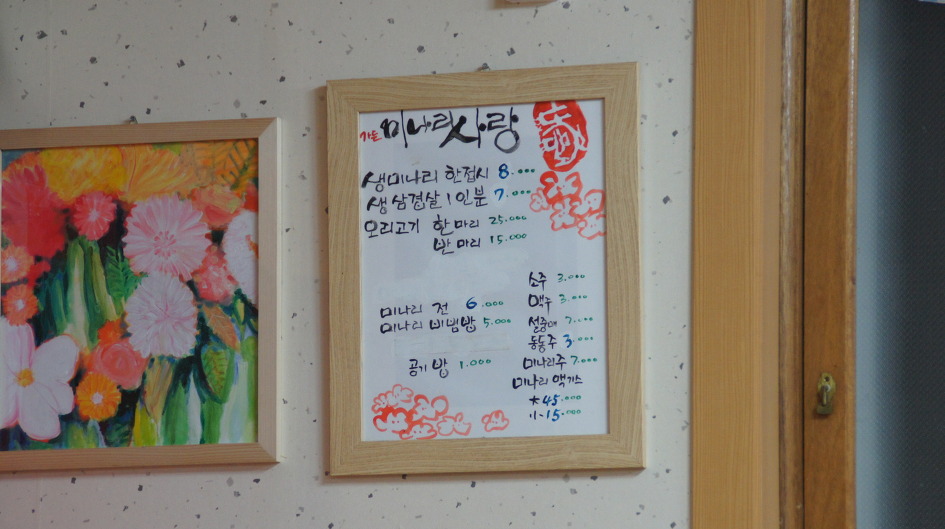 가든 미나리 사랑
생미나리 한접시 8.000
생 삼겹살 1인분 7.000
오리고기 한마리 25.000
반마리 15.000
미나리 전 6.000
미나리 비빔밥 5.000
공기밥 1.000
소주 3.000
맥주 3.000
설중매 7.000
동동주 3.000
미나리주 7.000
미나리 액기스
大 45.000
小 15.000